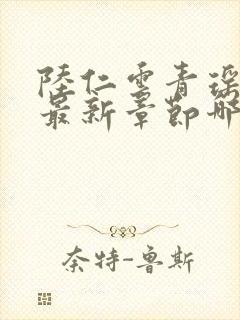 陸仁雲青瑶
最新章節哪
奈特-鲁斯